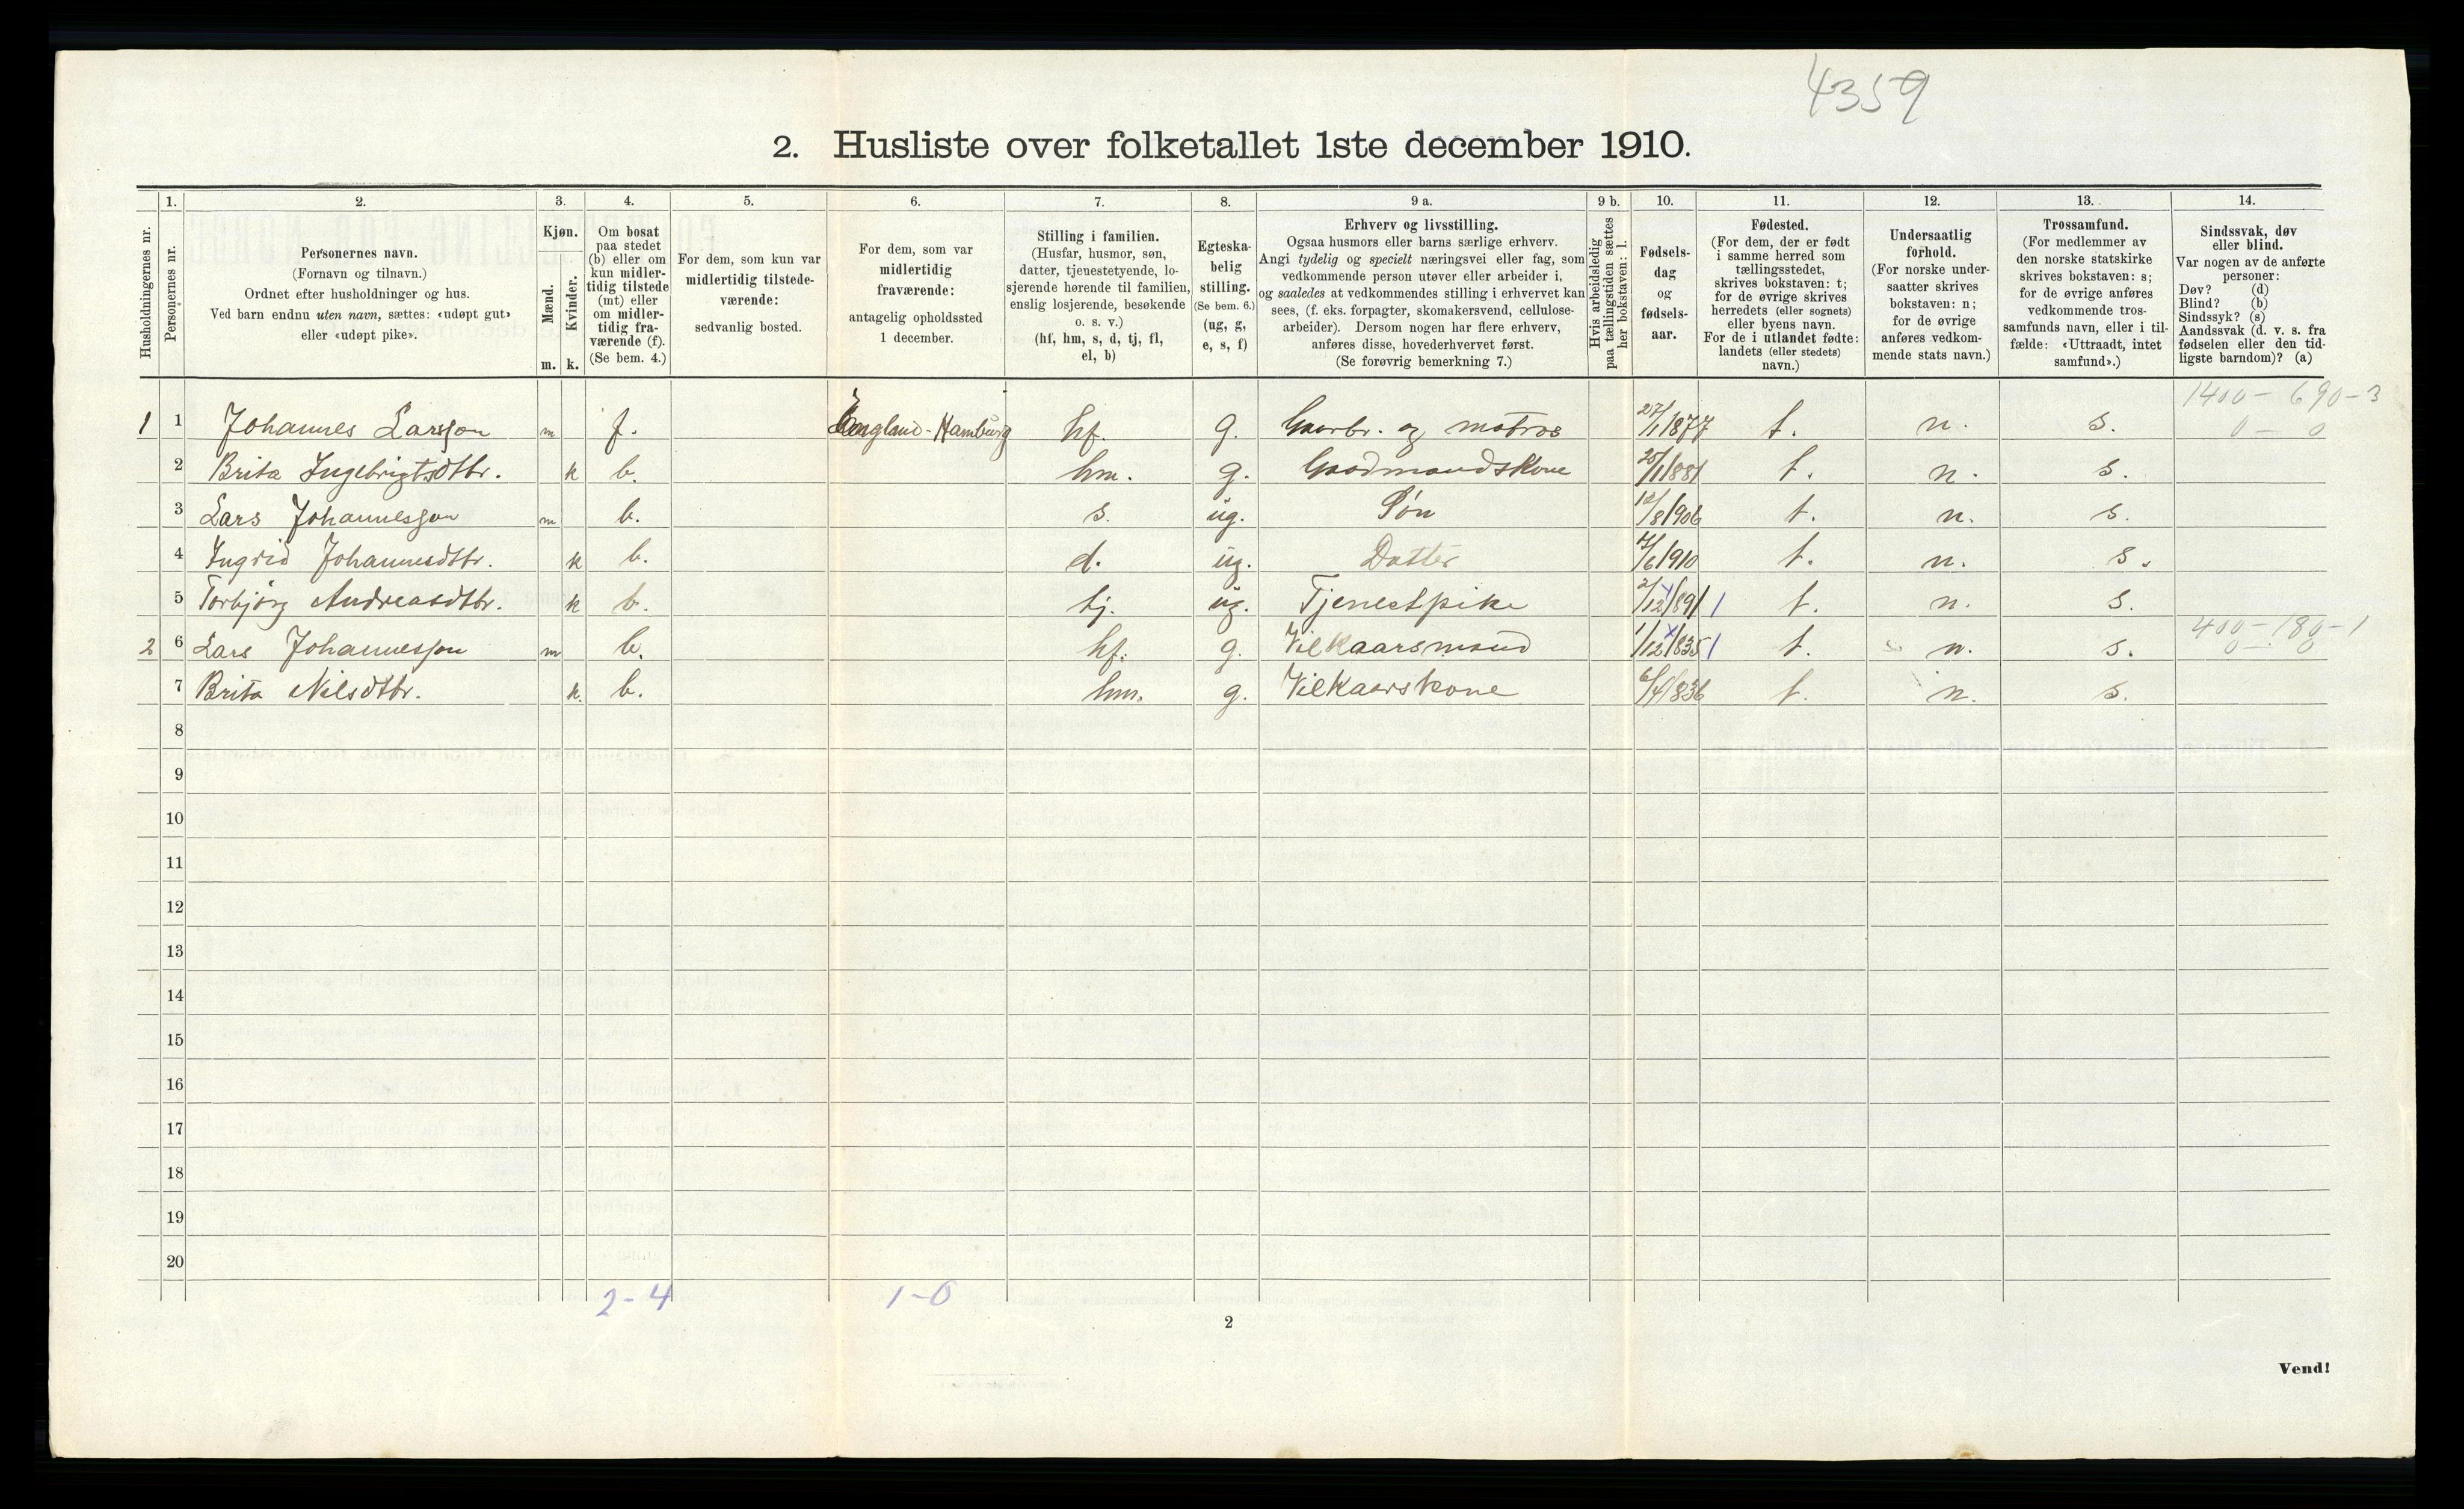 4359
2. Husliste over folketallet 1ste december 1910.
Husholdningernes nr.
1.
Personernes nr.
2.
Personernes navn.
(Fornavn og tilnavn.)
Ordnet efter husholdninger og hus.
Ved barn endnu uten navn, sættes: «udøpt gut»
eller «udøpt pike».
3.
Kjøn.
Mænd.
Kvinder.
m. k.
4.
Om bosat
paa stedet
(b) eller om
kun midler-
tidig tilstede
(mt) eller
om midler-
tidig fra-
værende (f).
(Se bem. 4.)
5.
For dem, som kun var
midlertidig tilstede-
værende:
sedvanlig bosted.
6.
For dem, som var
midlertidig
fraværende:
antagelig opholdssted
1 december.
7.
Stilling i familien.
(Husfar, husmor, søn,
datter, tjenestetyende, lo-
sjerende hørende til familien,
enslig losjerende, besøkende
o. s. v.)
(hf, hm, s, d, tj, fl,
el, b)
8.
Egteska-
belig
stilling.
(Se bem. 6.)
(ug, g,
e, s, f)
9 a.
Erhverv og livsstilling.
Ogsaa husmors eller barns særlige erhverv.
Angi tydelig og specielt næringsvei eller fag, som
vedkommende person utøver eller arbeider i,
og saaledes at vedkommendes stilling i erhvervet kan
sees, (f. eks. forpagter, skomakersvend, cellulose-
arbeider). Dersom nogen har flere erhverv,
anføres disse, hovederhvervet først.
(Se forøvrig bemerkning 7.)
9 b.
Hvis arbeidsledig
paa tællingstiden sættes
her bokstaven: l.
10.
Fødsels-
dag
og
fødsels-
aar.
11.
Fødested.
(For dem, der er født
i samme herred som
tællingsstedet,
skrives bokstaven: t;
for de øvrige skrives
herredets (eller sognets)
eller byens navn.
For de i utlandet fødte:
landets (eller stedets)
navn.)
12.
Undersaatlig
forhold.
(For norske under-
saatter skrives
bokstaven: n;
for de øvrige
anføres vedkom-
mende stats navn.)
13.
Trossamfund.
(For medlemmer av
den norske statskirke
skrives bokstaven: s;
for de øvrige anføres
vedkommende tros-
samfunds navn, eller i til-
fælde: «Uttraadt, intet
samfund».)
14.
Sindssvak, døv
eller blind.
Var nogen av de anførte
personer:
Døv? (d)
Blind? (b)
Sindssyk? (s)
Aandssvak (d. v. s. fra
fødselen eller den tid-
ligste barndom)? (a)
1400 - 690 - 3
1 1 Johannes Larsson m f. England - Hamburg hf. g. Gaarbr. og matros 27/1 1877 t. n. s. 0 - 0
2 Brita Ingebrigtsdtbr. k b. hm. g. Gaadmandskone 25/1 1881 t. n. s.
3 Lars Johannesson m b. s. ug. Søn 12/8 1906 t. n. s.
4 Ingrid Johannesdtbr. k b. d. ug. Datter 4/6 1910 t. n. s.
5 Torbjørg Andreasdtbr. k b. tj. ug. Tjenestpike 2/12 1891 t. n. s.
400 - 180 - 1
2 6 Lars Johannesson m b. hf. g. Vilkaarsmand 1/12 1835 t. n. s. 0 - 0
7 Brita Nilsdtbr. k. b. hm. g. Vilkaarskone 6/4 1836 t. n. s.
8
9
10
11
12
13
14
15
16
17
18
19
20
2 - 4 1 - 0
2
Vend!